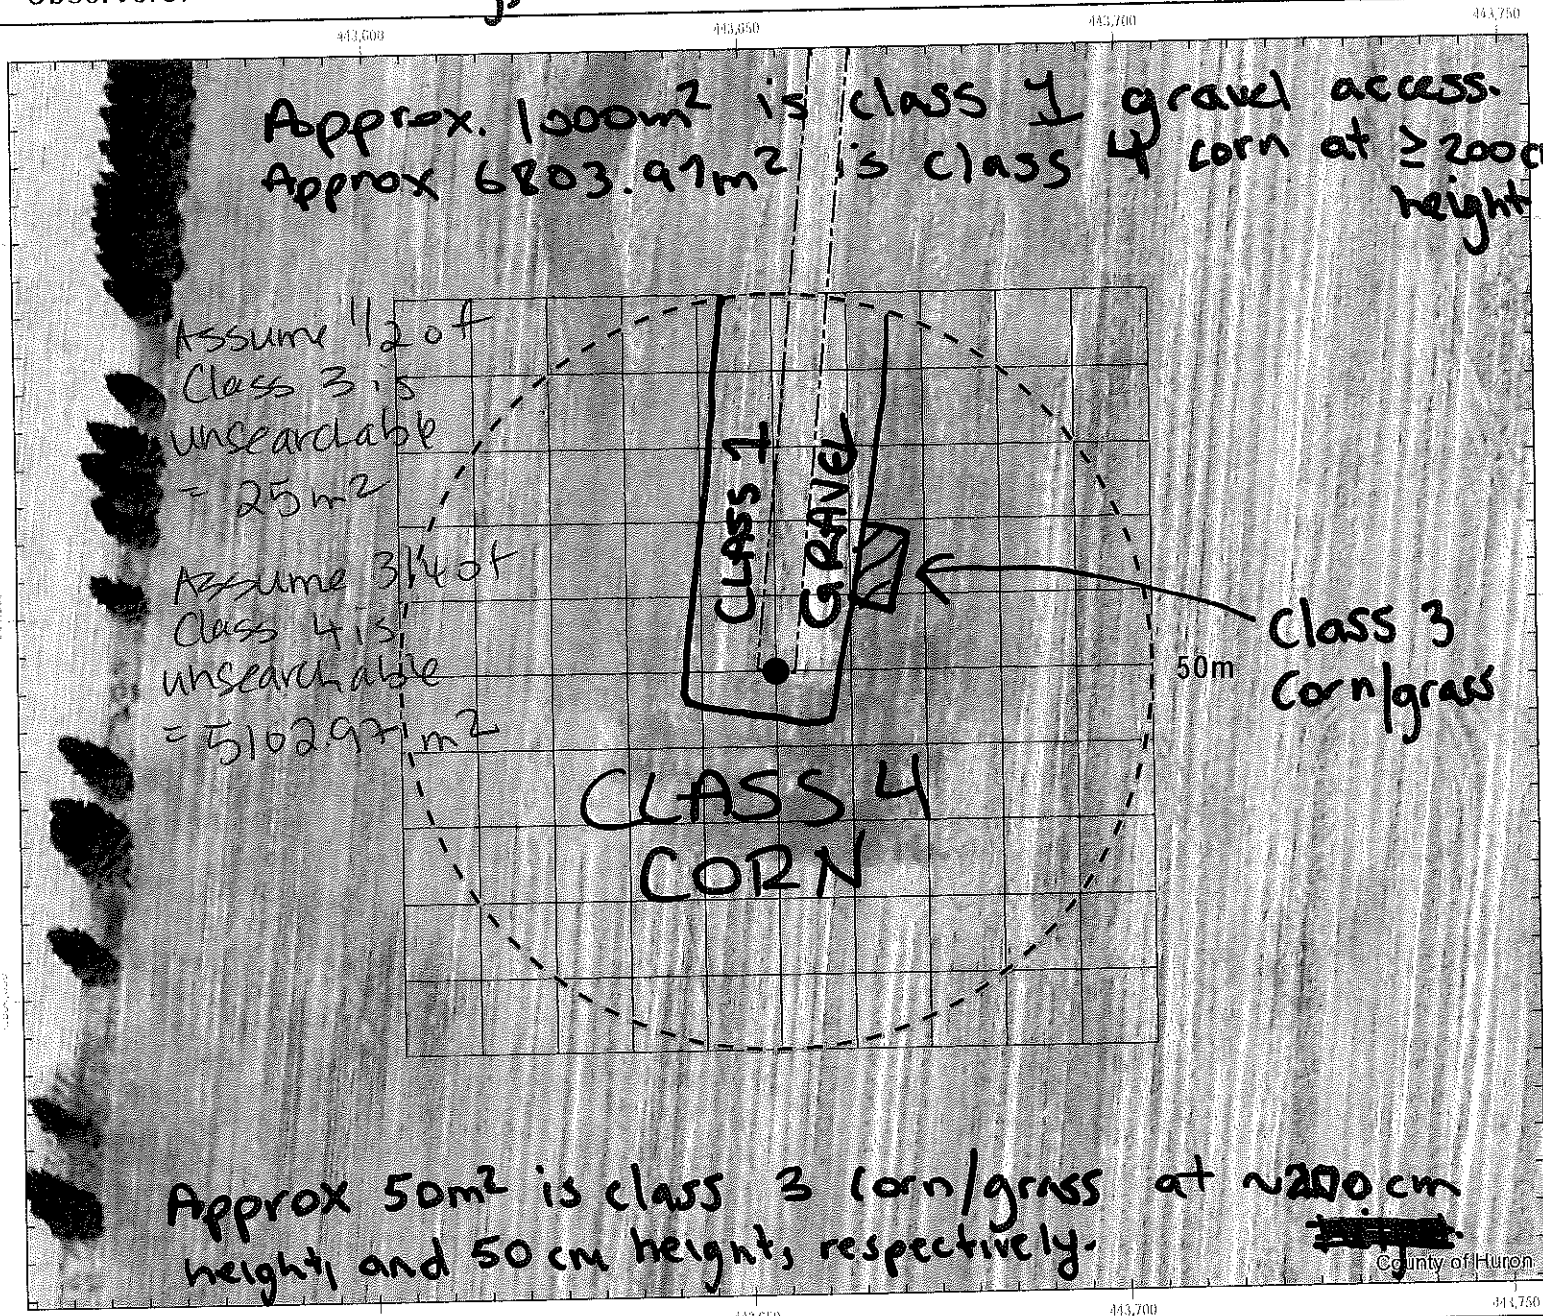 443,600 443,650 443,700 443,750
Approx. 1000m² is class 1 gravel access.
Approx 6803.97m² is class 4 corn at ≥200c
height
Assume 1/2 of
Class 3 is
unsearchable
= 25m²
CLASS 1
GRAVEL
Assume 3/4 of
Class 4 is
unsearchable
= 5102.97 m²
Class 3
Corn/grass
50m
CLASS 4
CORN
Approx 50m² is class 3 corn/grass at ~200 cm
height, and 50 cm height, respectively.
County of Huron
443,650 443,700 443,750